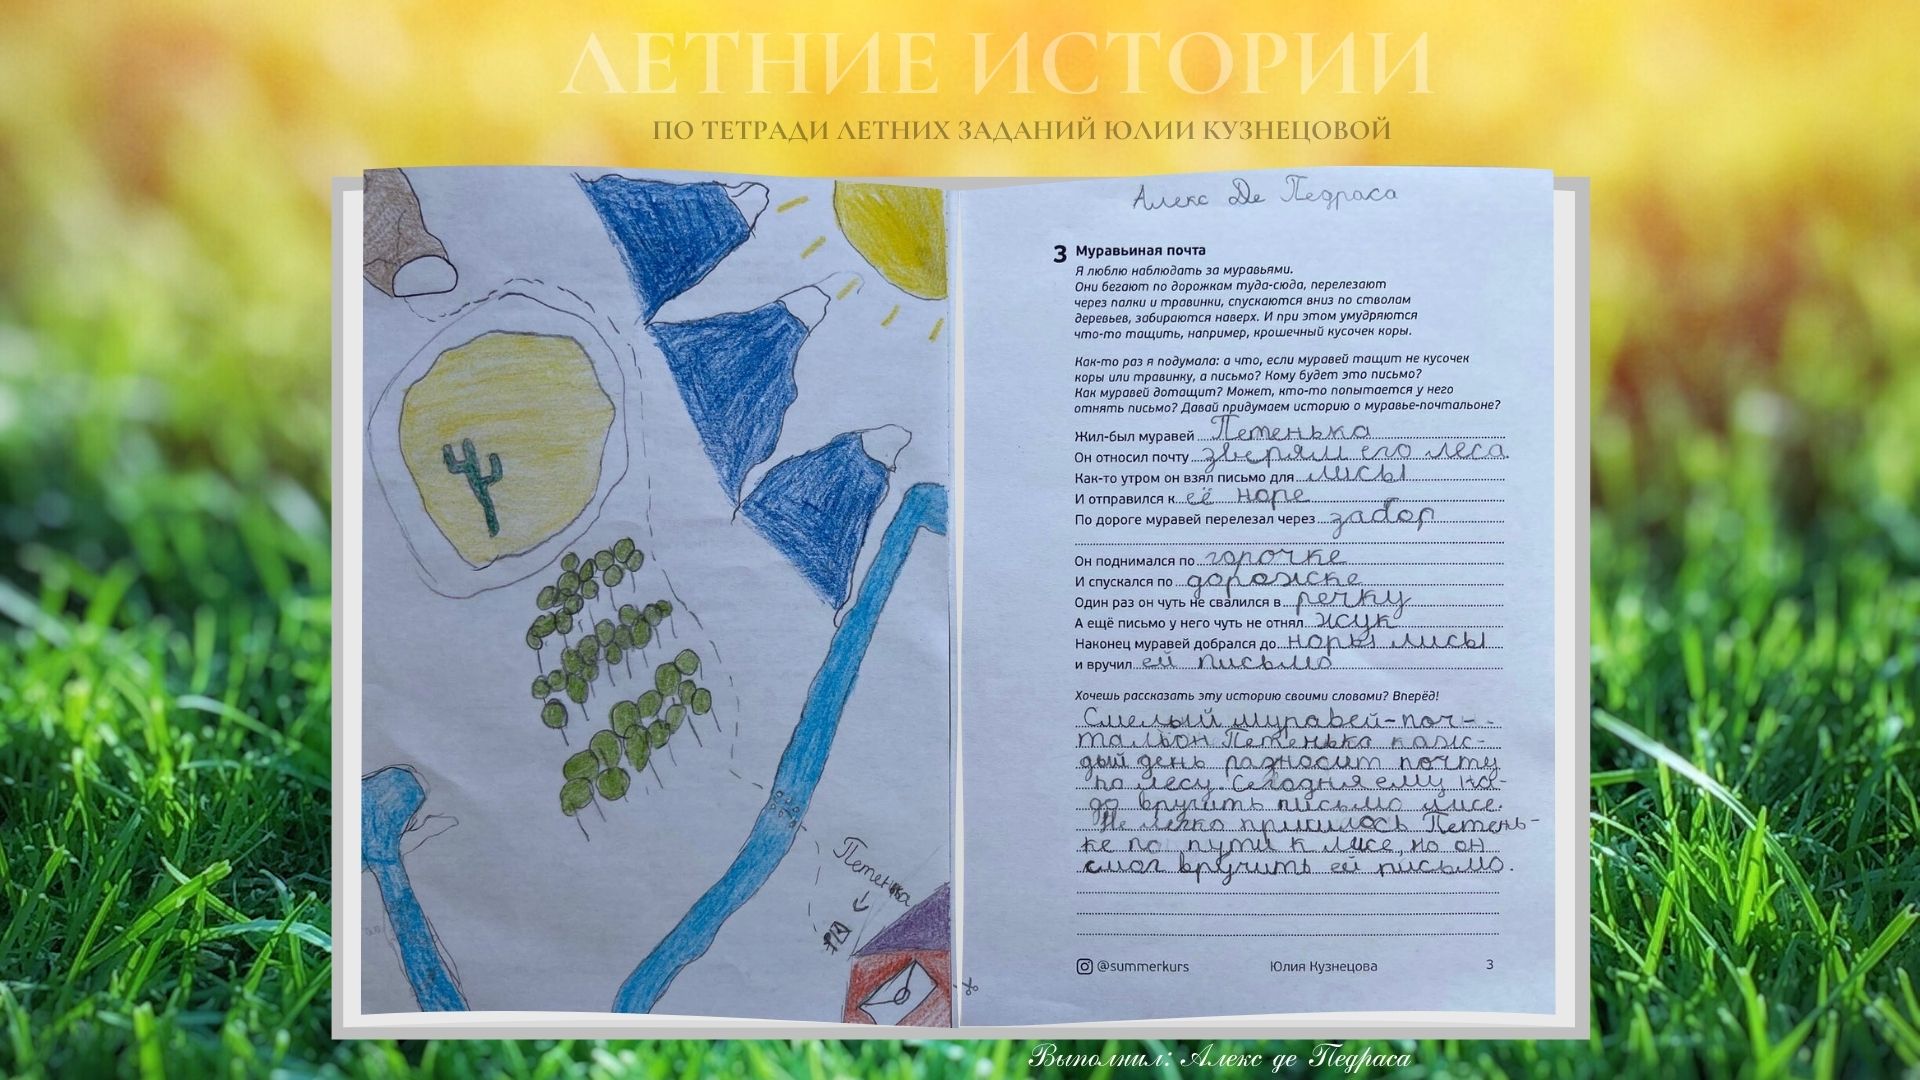 ЛЕТНИЕ ИСТОРИИ
ПО ТЕТРАДИ ЛЕТНИХ ЗАДАНИЙ ЮЛИИ КУЗНЕЦОВОЙ
Петенька
Алекс Де Педраса
3 Муравьиная почта
Я люблю наблюдать за муравьями.
Они бегают по дорожкам туда-сюда, перелезают
через палки и травинки, спускаются вниз по стволам
деревьев, забираются наверх. И при этом умудряются
что-то тащить, например, крошечный кусочек коры.
Как-то раз я подумала: а что, если муравей тащит не кусочек
коры или травинку, а письмо? Кому будет это письмо?
Как муравей дотащит? Может, кто-то попытается у него
отнять письмо? Давай придумаем историю о муравье-почтальоне?
Жил-был муравей Петенька
Он относил почту зверям его леса.
Как-то утром он взял письмо для лисы
И отправился к её норе
По дороге муравей перелезал через забор
Он поднимался по горочке
И спускался по дорожке
Один раз он чуть не свалился в речку
А ещё письмо у него чуть не отнял жук
Наконец муравей добрался до норы лисы
и вручил ей письмо
Хочешь рассказать эту историю своими словами? Вперёд!
Смелый муравей-поч-
тальон Петенька каж-
дый день разносит почту
по лесу. Сегодня ему на-
до вручить письмо лисе.
Не легко пришлось Петень-
ке по пути к лисе, но он
смог вручить ей письмо.
@summerkurs
Юлия Кузнецова
3
Выполнил: Алекс де Педраса